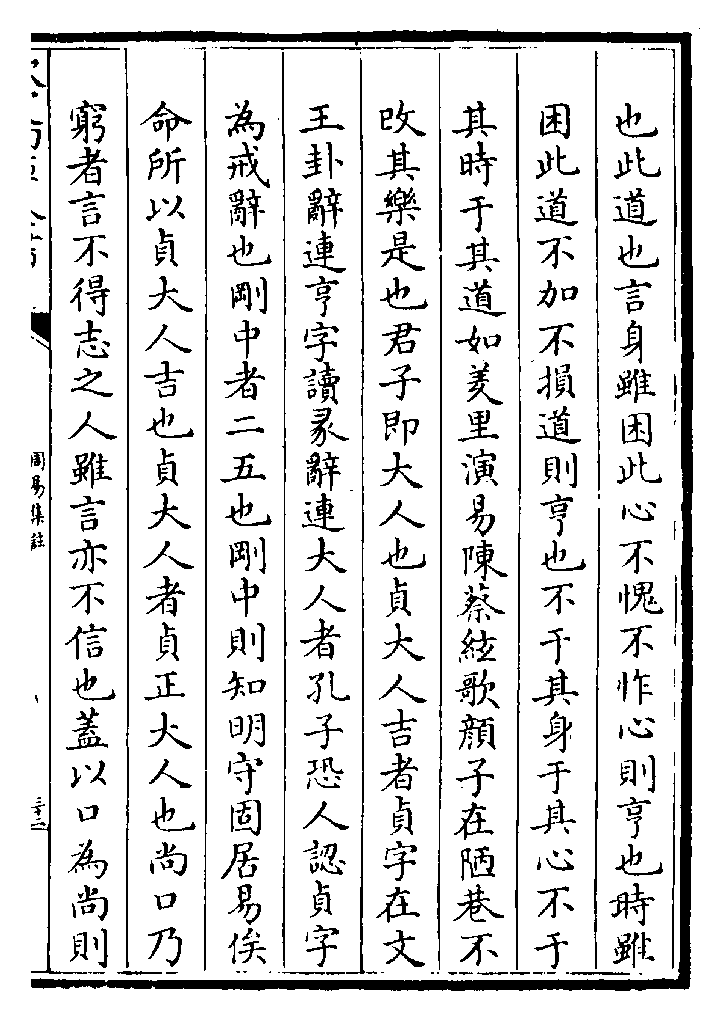 也此道也言身雖困此心不愧不怍心則亨也時雖
困此道不加不損道則亨也不于其身于其心不于
其時于其道如羑里演易陳蔡絃歌顔子在陋巷不
改其樂是也君子即大人也貞大人吉者貞字在文
王卦辭連亨字讀彖辭連大人者孔子恐人認貞字
為戒辭也剛中者二五也剛中則知明守固居易俟
命所以貞大人吉也貞大人者貞正大人也尚口乃
窮者言不得志之人雖言亦不信也蓋以口為尚則
周易集註